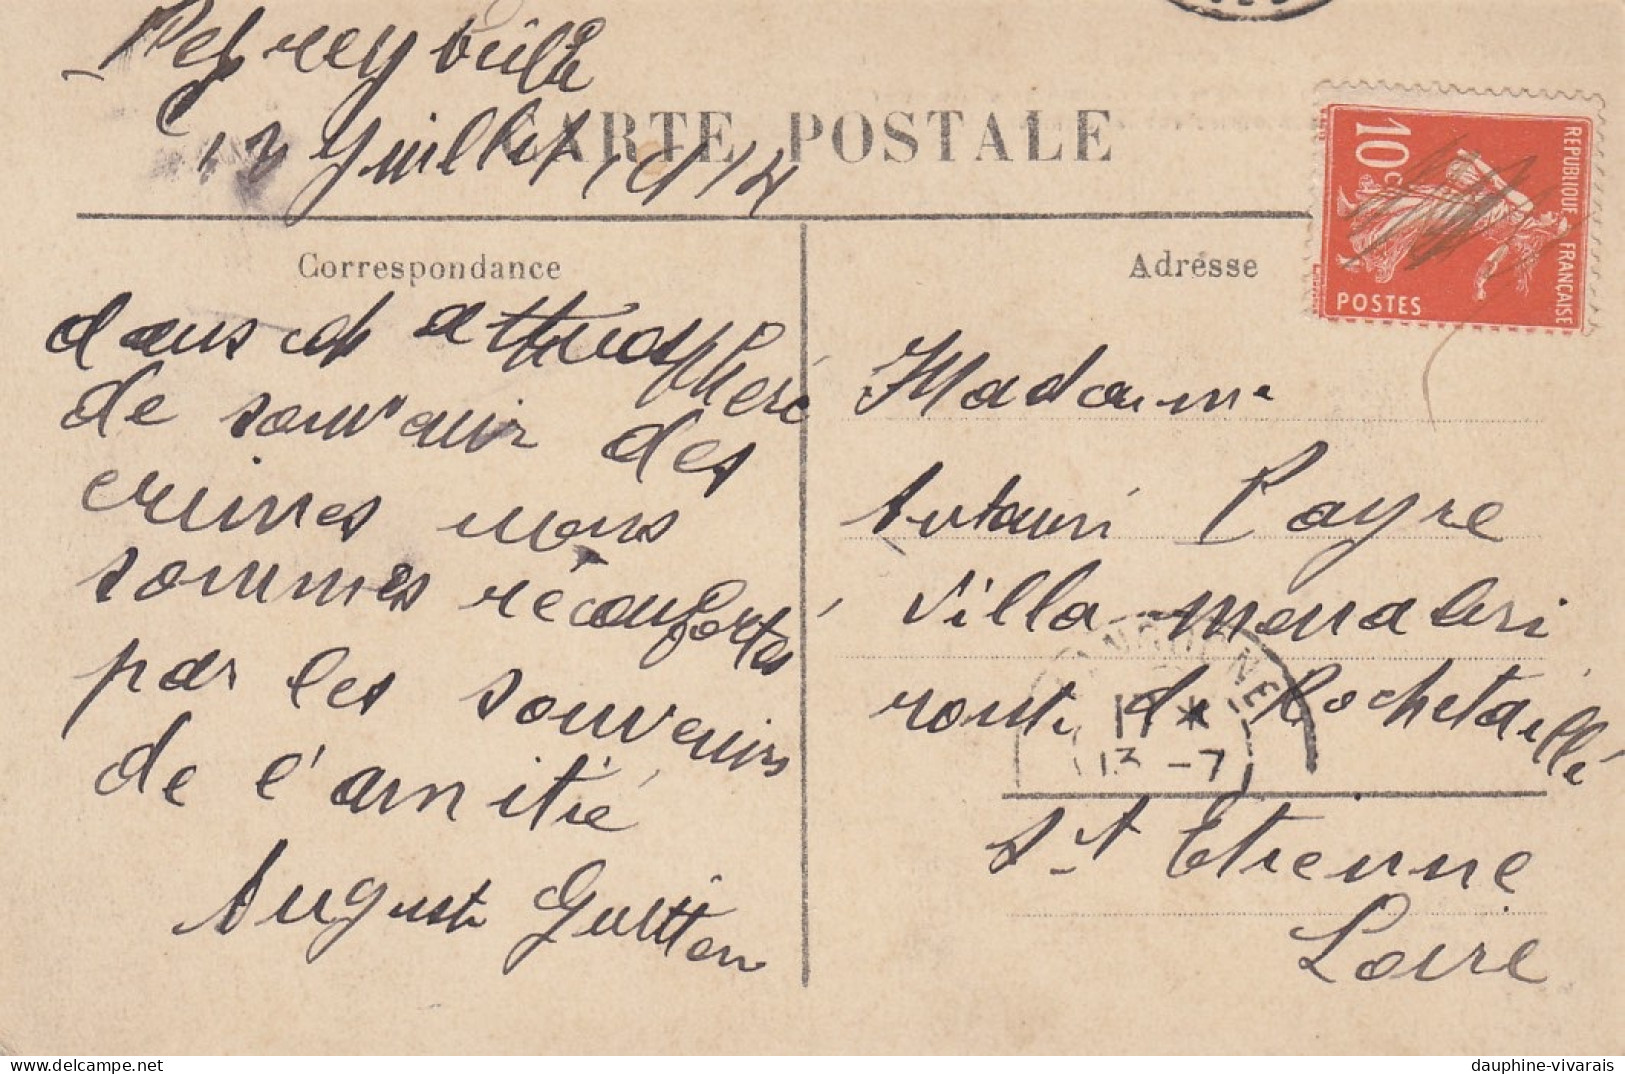 Pefreyville
12 Juillet 1914
CARTE POSTALE
REPUBLIQUE FRANÇAISE
10c
POSTES
Correspondance
dans cet atmosphere
de souvenir des
crimes nous
sommes réconfortés
par les souvenirs
de l'amitié
August Guitton
Adresse
Madame
Antouni Payre
Villa
route de Rochetaillé
St Etienne
Loire
17 *
13 -7
dauphine-vivarais